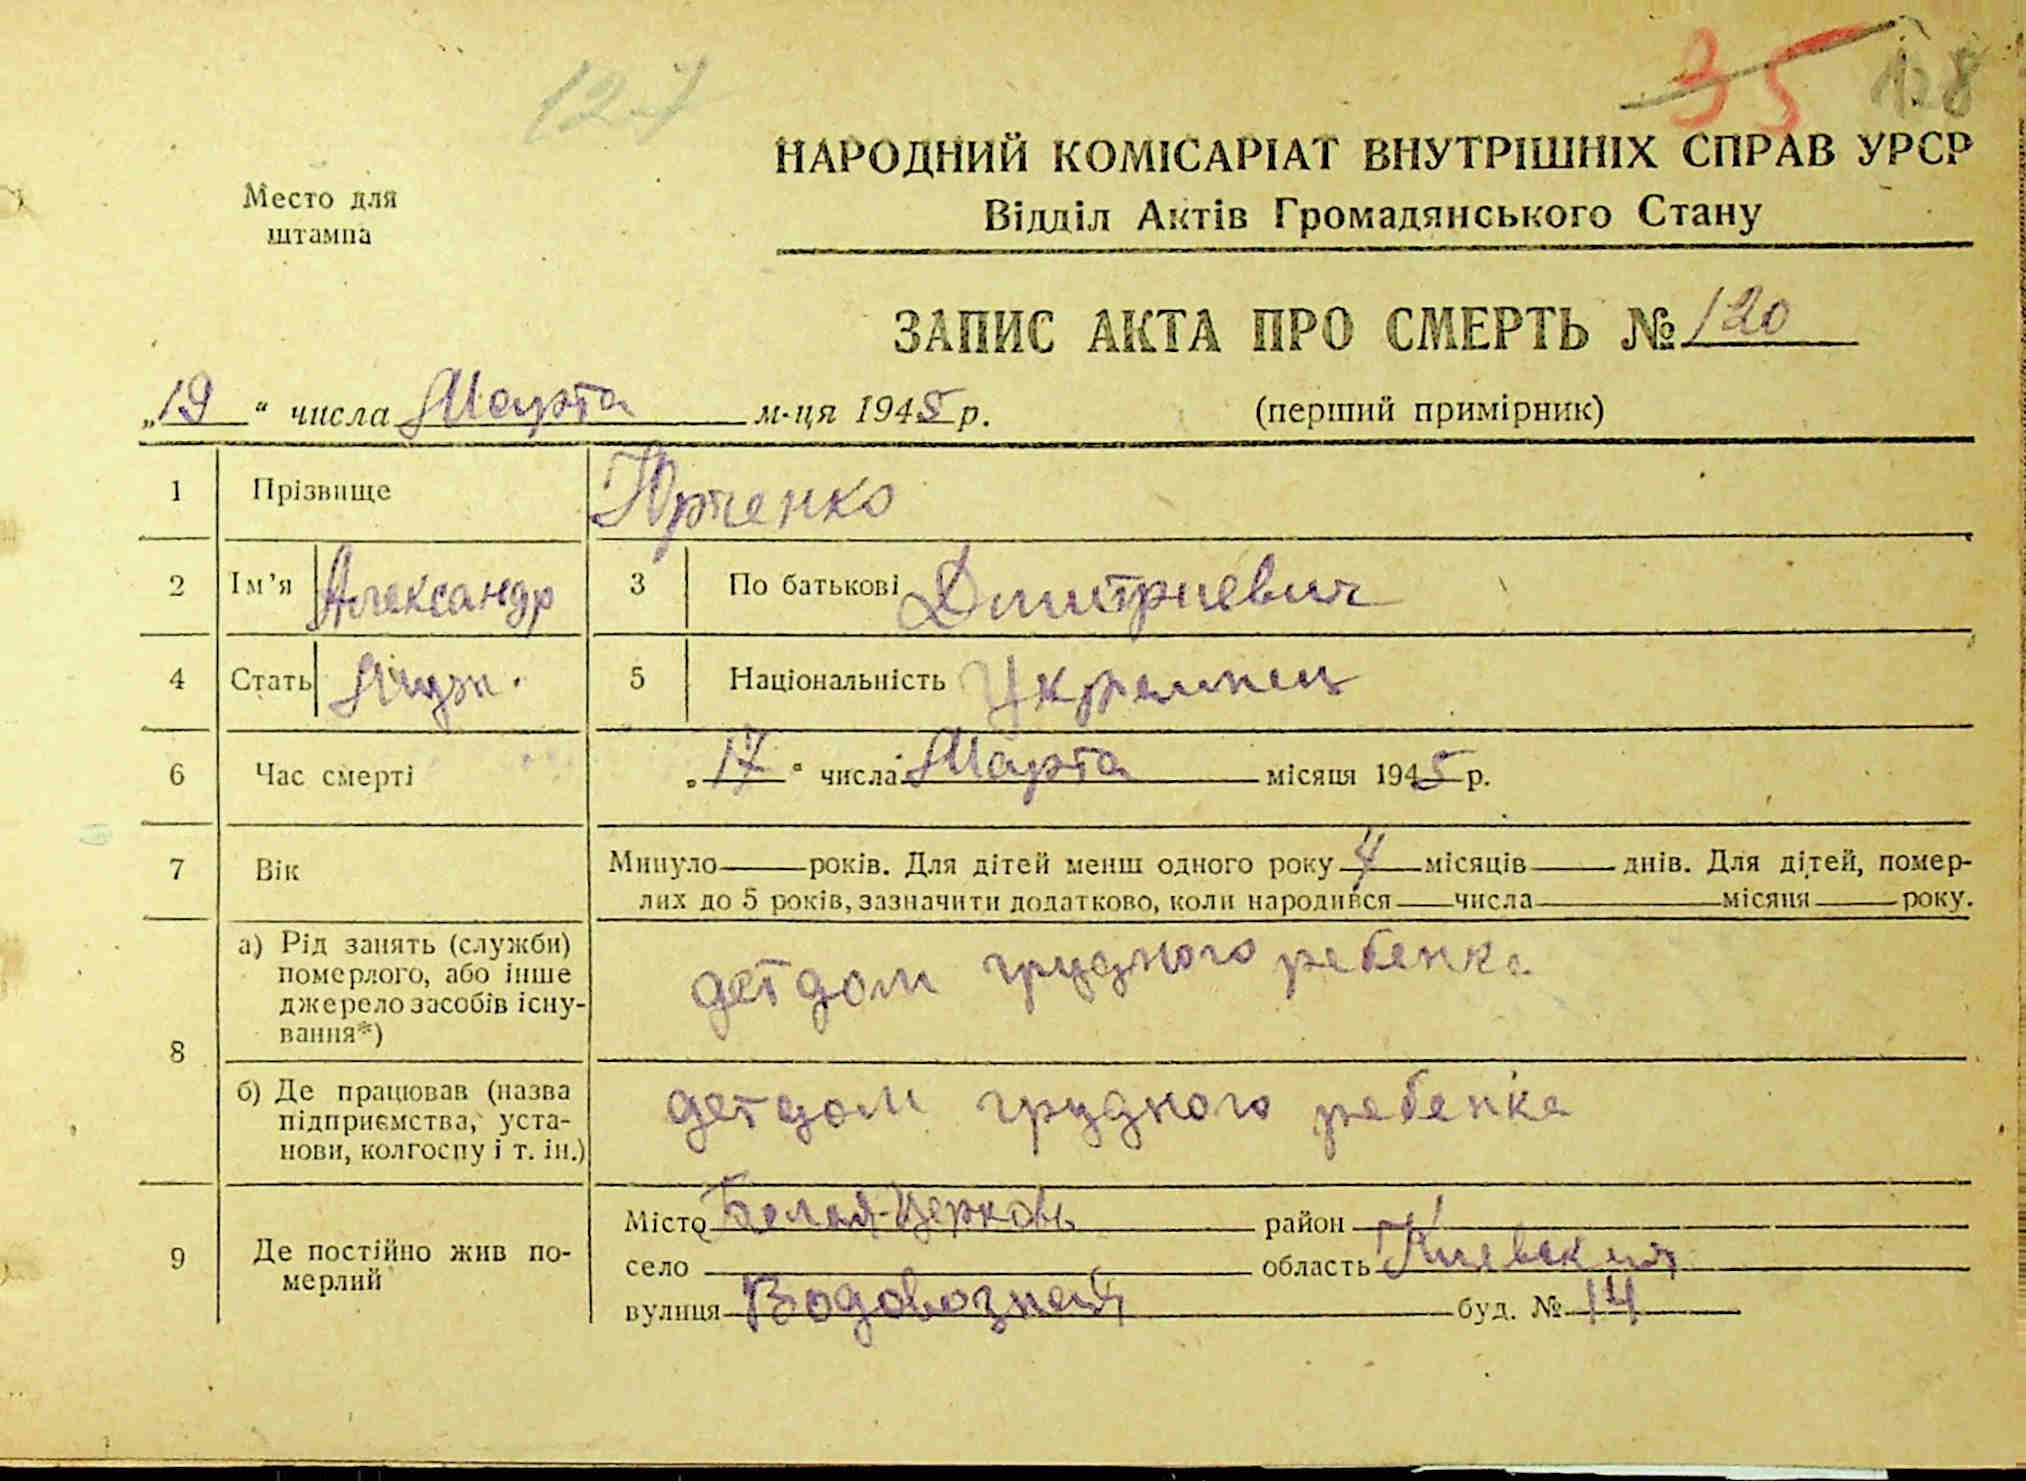 127
35 128
Место для
штампа
НАРОДНИЙ КОМІСАРІАТ ВНУТРІШНІХ СПРАВ УРСР
Відділ Актів Громадянського Стану
ЗАПИС АКТА ПРО СМЕРТЬ № 120
„19“ числа Марта м-ця 1945 р. (перший примірник)
1 Прізвище Юрченко
2 Ім’я Александр 3 По батькові Дмитриевич
4 Стать Муж. 5 Національність Украинец
6 Час смерті „17“ числа Марта місяця 1945 р.
7 Вік Минуло — років. Для дітей менш одного року 4 місяців — днів. Для дітей, помер-
лих до 5 років, зазначити додатково, коли народився — числа — місяця — року.
8 а) Рід занять (служби)
померлого, або інше
джерело засобів існу-
вання*)
детдом грудного ребенка
б) Де працював (назва
підприємства, уста-
нови, колгоспу і т. ін.)
детдом грудного ребенка
9 Де постійно жив по-
мерлий
Місто Белая-Церковь район
село область Киевская
вулиця Водовозная буд. № 14